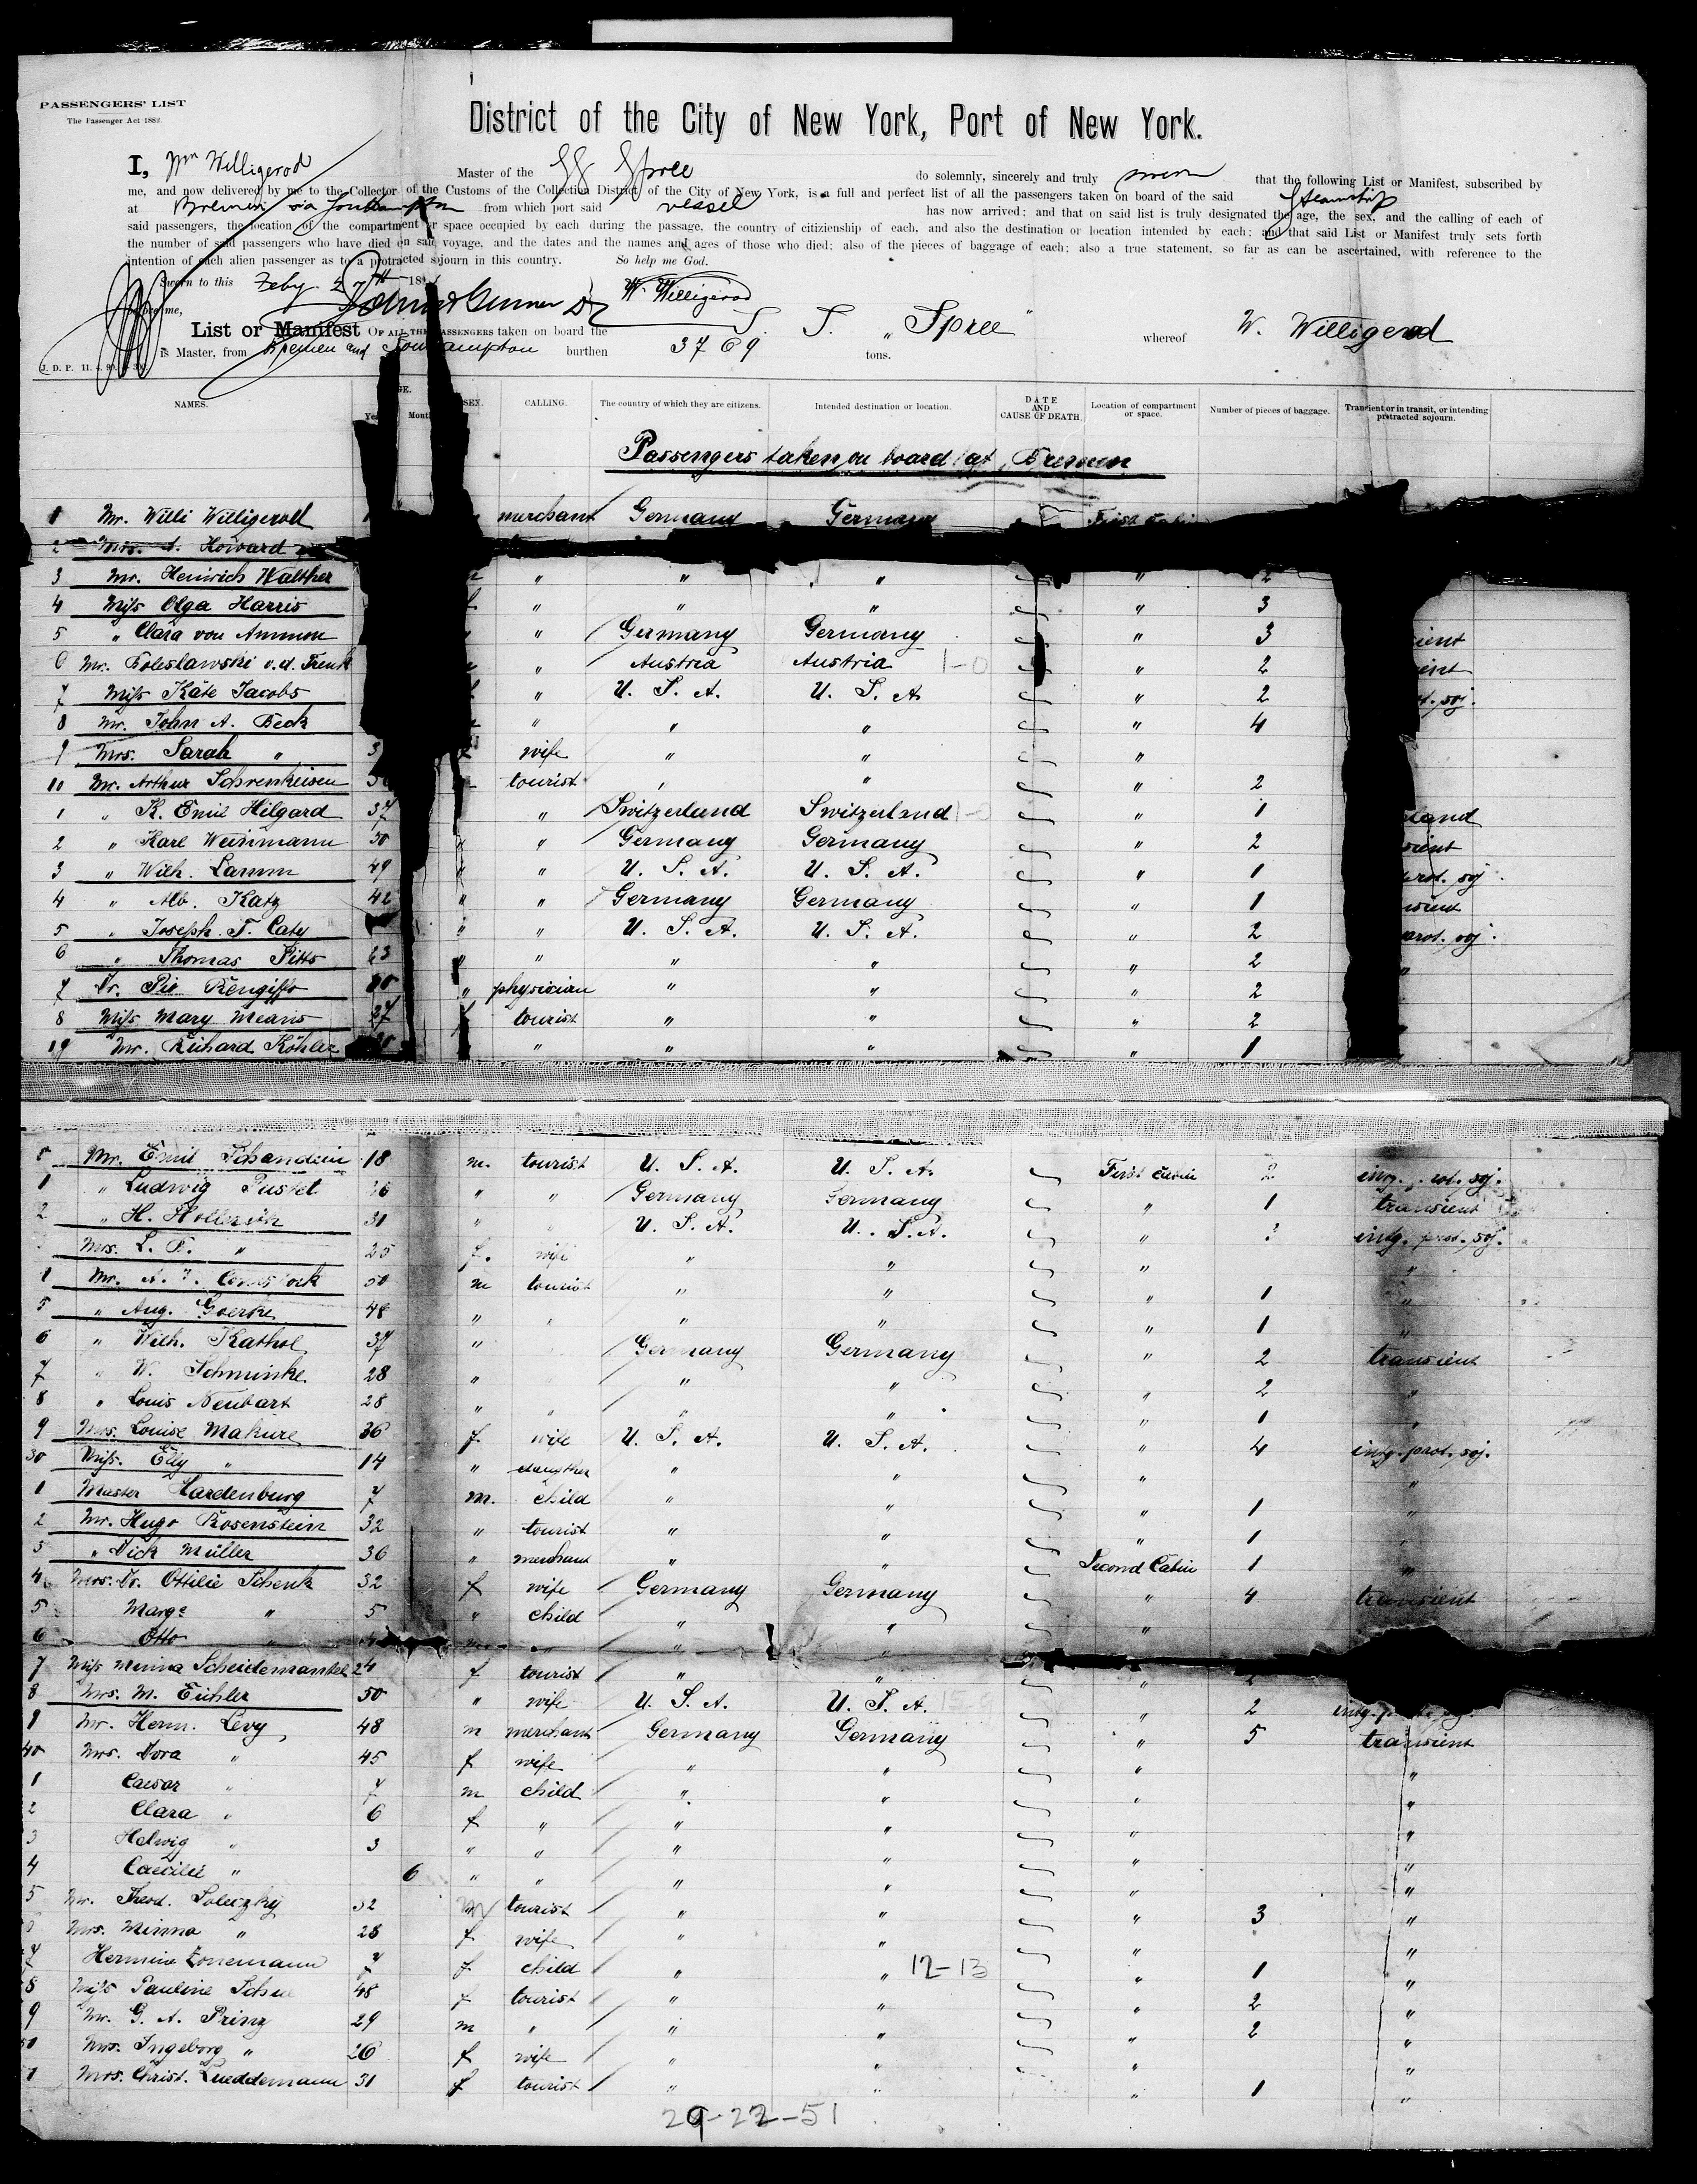 PASSENGERS' LIST
The Passenger Act 1882.
District of the City of New York, Port of New York.
I, Wm Willigerod Master of the SS Spree do solemnly, sincerely and truly swear that the following List or Manifest, subscribed by
me, and now delivered by me to the Collector of the Customs of the Collection District of the City of New York, is a full and perfect list of all the passengers taken on board of the said Steamship
at Bremen via Southampton from which port said vessel has now arrived; and that on said list is truly designated the age, the sex, and the calling of each of
said passengers, the location of the compartment or space occupied by each during the passage, the country of citizenship of each, and also the destination or location intended by each; and that said List or Manifest truly sets forth
the number of said passengers who have died on said voyage, and the dates and the names and ages of those who died; also of the pieces of baggage of each; also a true statement, so far as can be ascertained, with reference to the
intention of each alien passenger as to a protracted sojourn in this country. So help me God.
Sworn to this Feby 27th 18
W. Willigerod
before me,
List or Manifest OF ALL THE PASSENGERS taken on board the S. S. „ Spree " whereof W. Willigerod
is Master, from Bremen and Southampton burthen 3769 tons.
J. D. P. 11.
NAMES. AGE. Years Months SEX. CALLING. The country of which they are citizens. Intended destination or location. DATE AND CAUSE OF DEATH. Location of compartment or space. Number of pieces of baggage. Transient or in transit, or intending protracted sojourn.
Passengers taken on board at Bremen
1 Mr. Willi Willigerod merchant Germany Germany First
2 Mrs. A. Howard
3 Mr. Heinrich Walther " " " " 2
4 Miss Olga Harris " " " " 3
5 " Clara von Ammon " Germany Germany " 3
6 Mr. Boleslawski v.d. Trenk " Austria Austria 1-0 " 2
7 Miss Käte Jacobs " U. S. A. U. S. A. " 2
8 Mr. John A. Beck " " " " 4
9 Mrs. Sarah " wife " " "
10 Mr. Arthur Schrenkeisen tourist " " " 2
1 " K. Emil Hilgard 37 " Switzerland Switzerland 1-0 " 1
2 " Karl Weinmann 30 " " Germany Germany " 2
3 " Wilh. Lamm 49 " " U. S. A. U. S. A. " 1
4 " Alb. Katz 42 " " Germany Germany " 1
5 " Joseph T. Caty " " U. S. A. U. S. A. " 2
6 " Thomas Pitts 23 " " " " " 2
7 Dr. Pio Rengiffo " physician " " " 2
8 Miss Mary Means 27 f tourist " " " 2
19 Mr. Richard Köhler " " " " 1
Mr. Emil Schandein 18 m. tourist U. S. A. U. S. A. First Cabin 2 intg. prot. soj.
1 " Ludwig Pustet " " Germany Germany " 1 transient
2 " H. Hollerith 31 " " U. S. A. U. S. A. " intg. prot. soj.
Mrs. L. B. " 25 f. wife " " " "
Mr. A. Comstock m tourist " " " 1 "
5 " Aug. Goerke 48 " " " " 1 "
6 " Wilh. Kathol 37 " Germany Germany " 2 transient
7 " W. Schminke 28 " " " " 2 "
8 " Louis Neubart 28 " " " " " 1 "
9 Mrs. Louise Makure 36 f. wife U. S. A. U. S. A. " 4 intg. prot. soj.
30 Miss. Edy " 14 " daugther " " " "
1 Master Hardenburg 7 m. child " " " 1 "
2 Mr. Hugo Rosenstein 32 " tourist " " " 1 "
3 " Dick Müller 36 " merchant " " Second Cabin 1 "
4 Mrs. Dr. Ottilie Schenk 32 f wife Germany Germany " 4 transient
5 Marge " 5 " child " " "
6 Otto " m " " "
7 Miss Minna Scheidemantel 24 f tourist " " "
8 Mrs. M. Eichler 50 " wife U. S. A. U. S. A. " 2 intg. prot. soj.
9 Mr. Herm. Levy 48 m merchant Germany Germany " 5 transient
40 Mrs. Dora " 45 f wife " " " "
1 Caesar " 7 m child " " " "
2 Clara " 6 f " " " " "
3 Helwig " 3 " " " " " "
4 Caecilie " 6 " " " " " "
5 Mr. Theod. Soletzky 32 m tourist " " " 3 "
6 Mrs. Minna " 28 f wife " " " "
7 Hermine Zonemann 7 f child " " 12-13 " 1 "
8 Miss Pauline 48 f tourist " " " 2 "
9 Mr. G. A. Prinz 29 m " " " " 2 "
50 Mrs. Ingeborg " 26 f wife " " " "
1 Mrs. Christ. Lueddemann 31 f tourist " " " 1 "
29-22-51